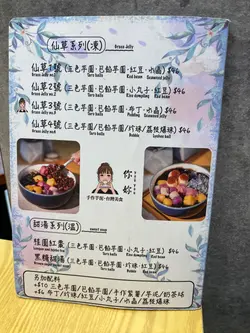 仙草系列(凍)
Grass Jelly
仙草1號(三色芋圓·芭蕉芋圓·紅豆·水晶) $46
Grass Jelly no.1 Taro balls Red bean Seaweed jelly
仙草2號(三色芋圓·芭蕉芋圓·小丸子·紅豆) $46
Grass Jelly no.2 Taro balls Rice dumpling Red bean
仙草3號(三色芋圓·芭蕉芋圓·布丁·水晶) $46
Grass Jelly no.3 Taro balls Pudding Seaweed jelly
仙草4號(三色芋圓/芭蕉芋圓/珍珠/荔枝爆珠) $46
Grass Jelly no.4 Taro balls Bubble
你好
手作芋圓·台灣美食
甜湯系列(溫)
sweet soup
桂圓紅棗(三色芋圓·芭蕉芋圓·小丸子·紅豆) $46
Taro balls Rice dumpling Red bean
黑糖甜湯(三色芋圓·芭蕉芋圓·小丸子·紅豆) $46
Taro balls Rice dumpling Red bean
另加配料
+$10 三色芋圓/芭蕉芋圓/手作紫薯/芋泥/奶茶凍
+$6 布丁/珍珠/紅豆/小丸子/水晶/荔枝爆珠